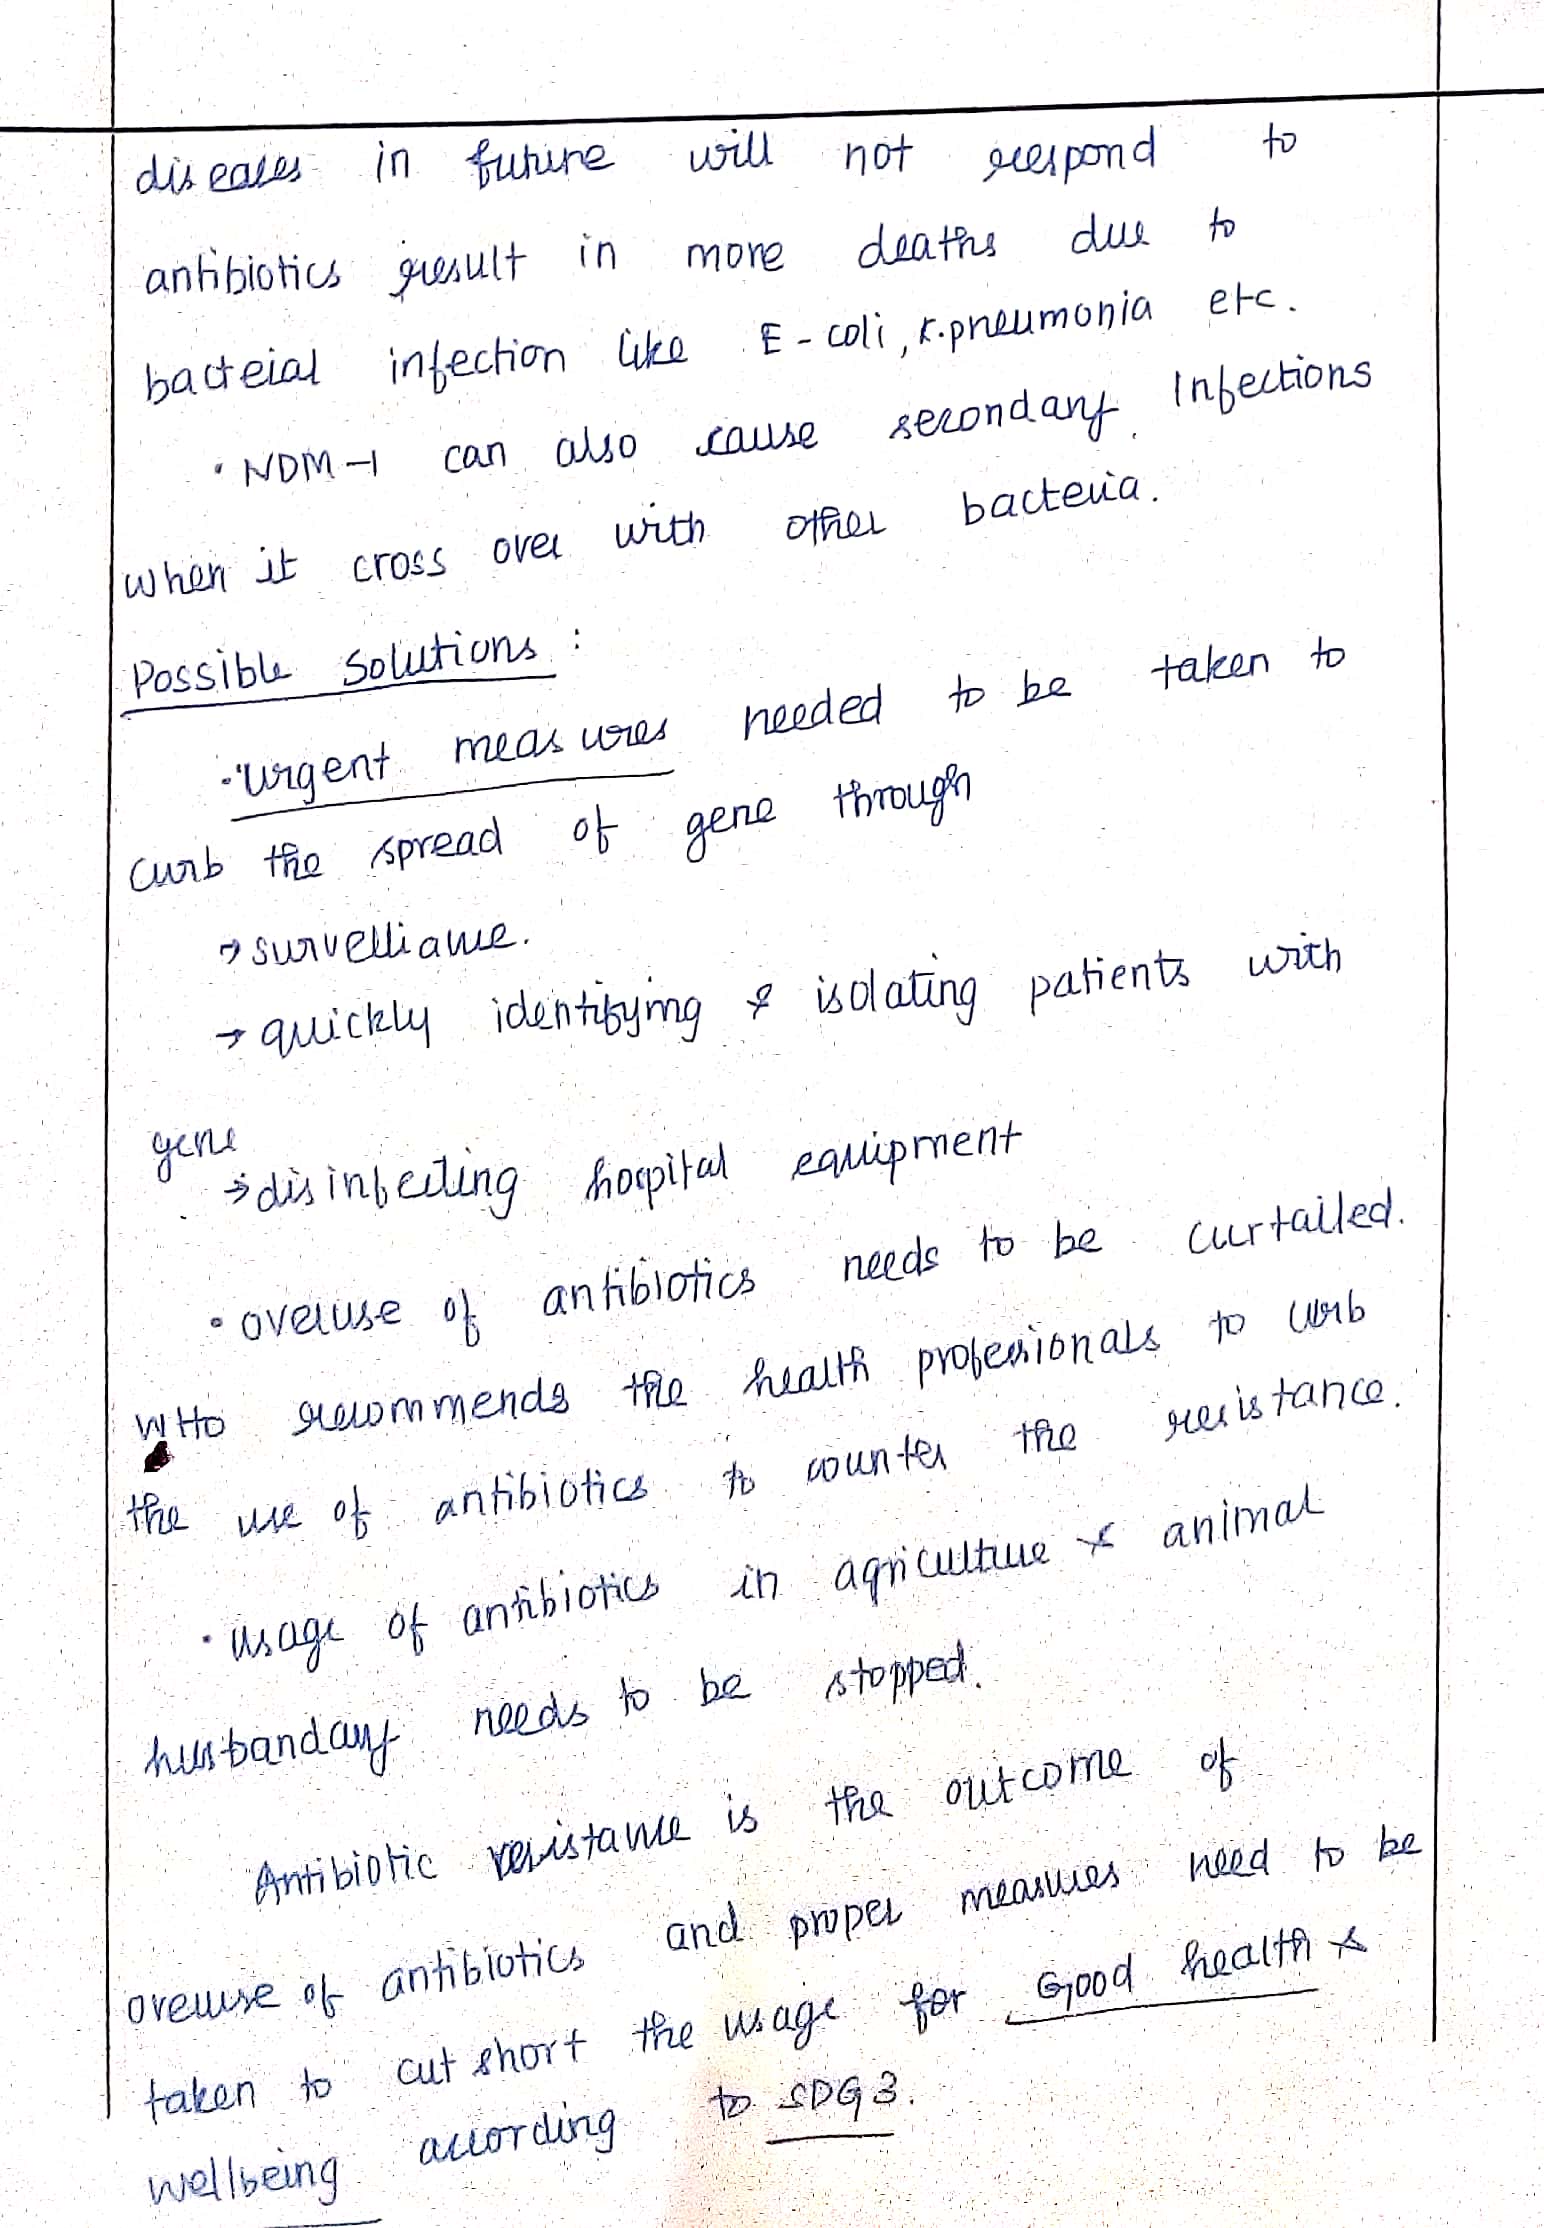 diseases in future will not respond to
antibiotics result in more deaths due to
bacteial infection like E-coli, K.pneumonia etc.
• NDM-1 can also cause secondary Infections
when it cross over with other bacteria.
Possible Solutions :
• Urgent measures needed to be taken to
curb the spread of gene through
→ survelliance.
→ quickly identifying & isolating patients with
gene
→ disinfecting hospital equipment
• overuse of antibiotics needs to be curtailed.
WHO recommends the health professionals to curb
the use of antibiotics to counter the resistance.
• usage of antibiotics in agriculture & animal
husbandary needs to be stopped.
Antibiotic resistance is the outcome of
overuse of antibiotics and proper measures need to be
taken to cut short the usage for Good health &
wellbeing according to SDG 3.